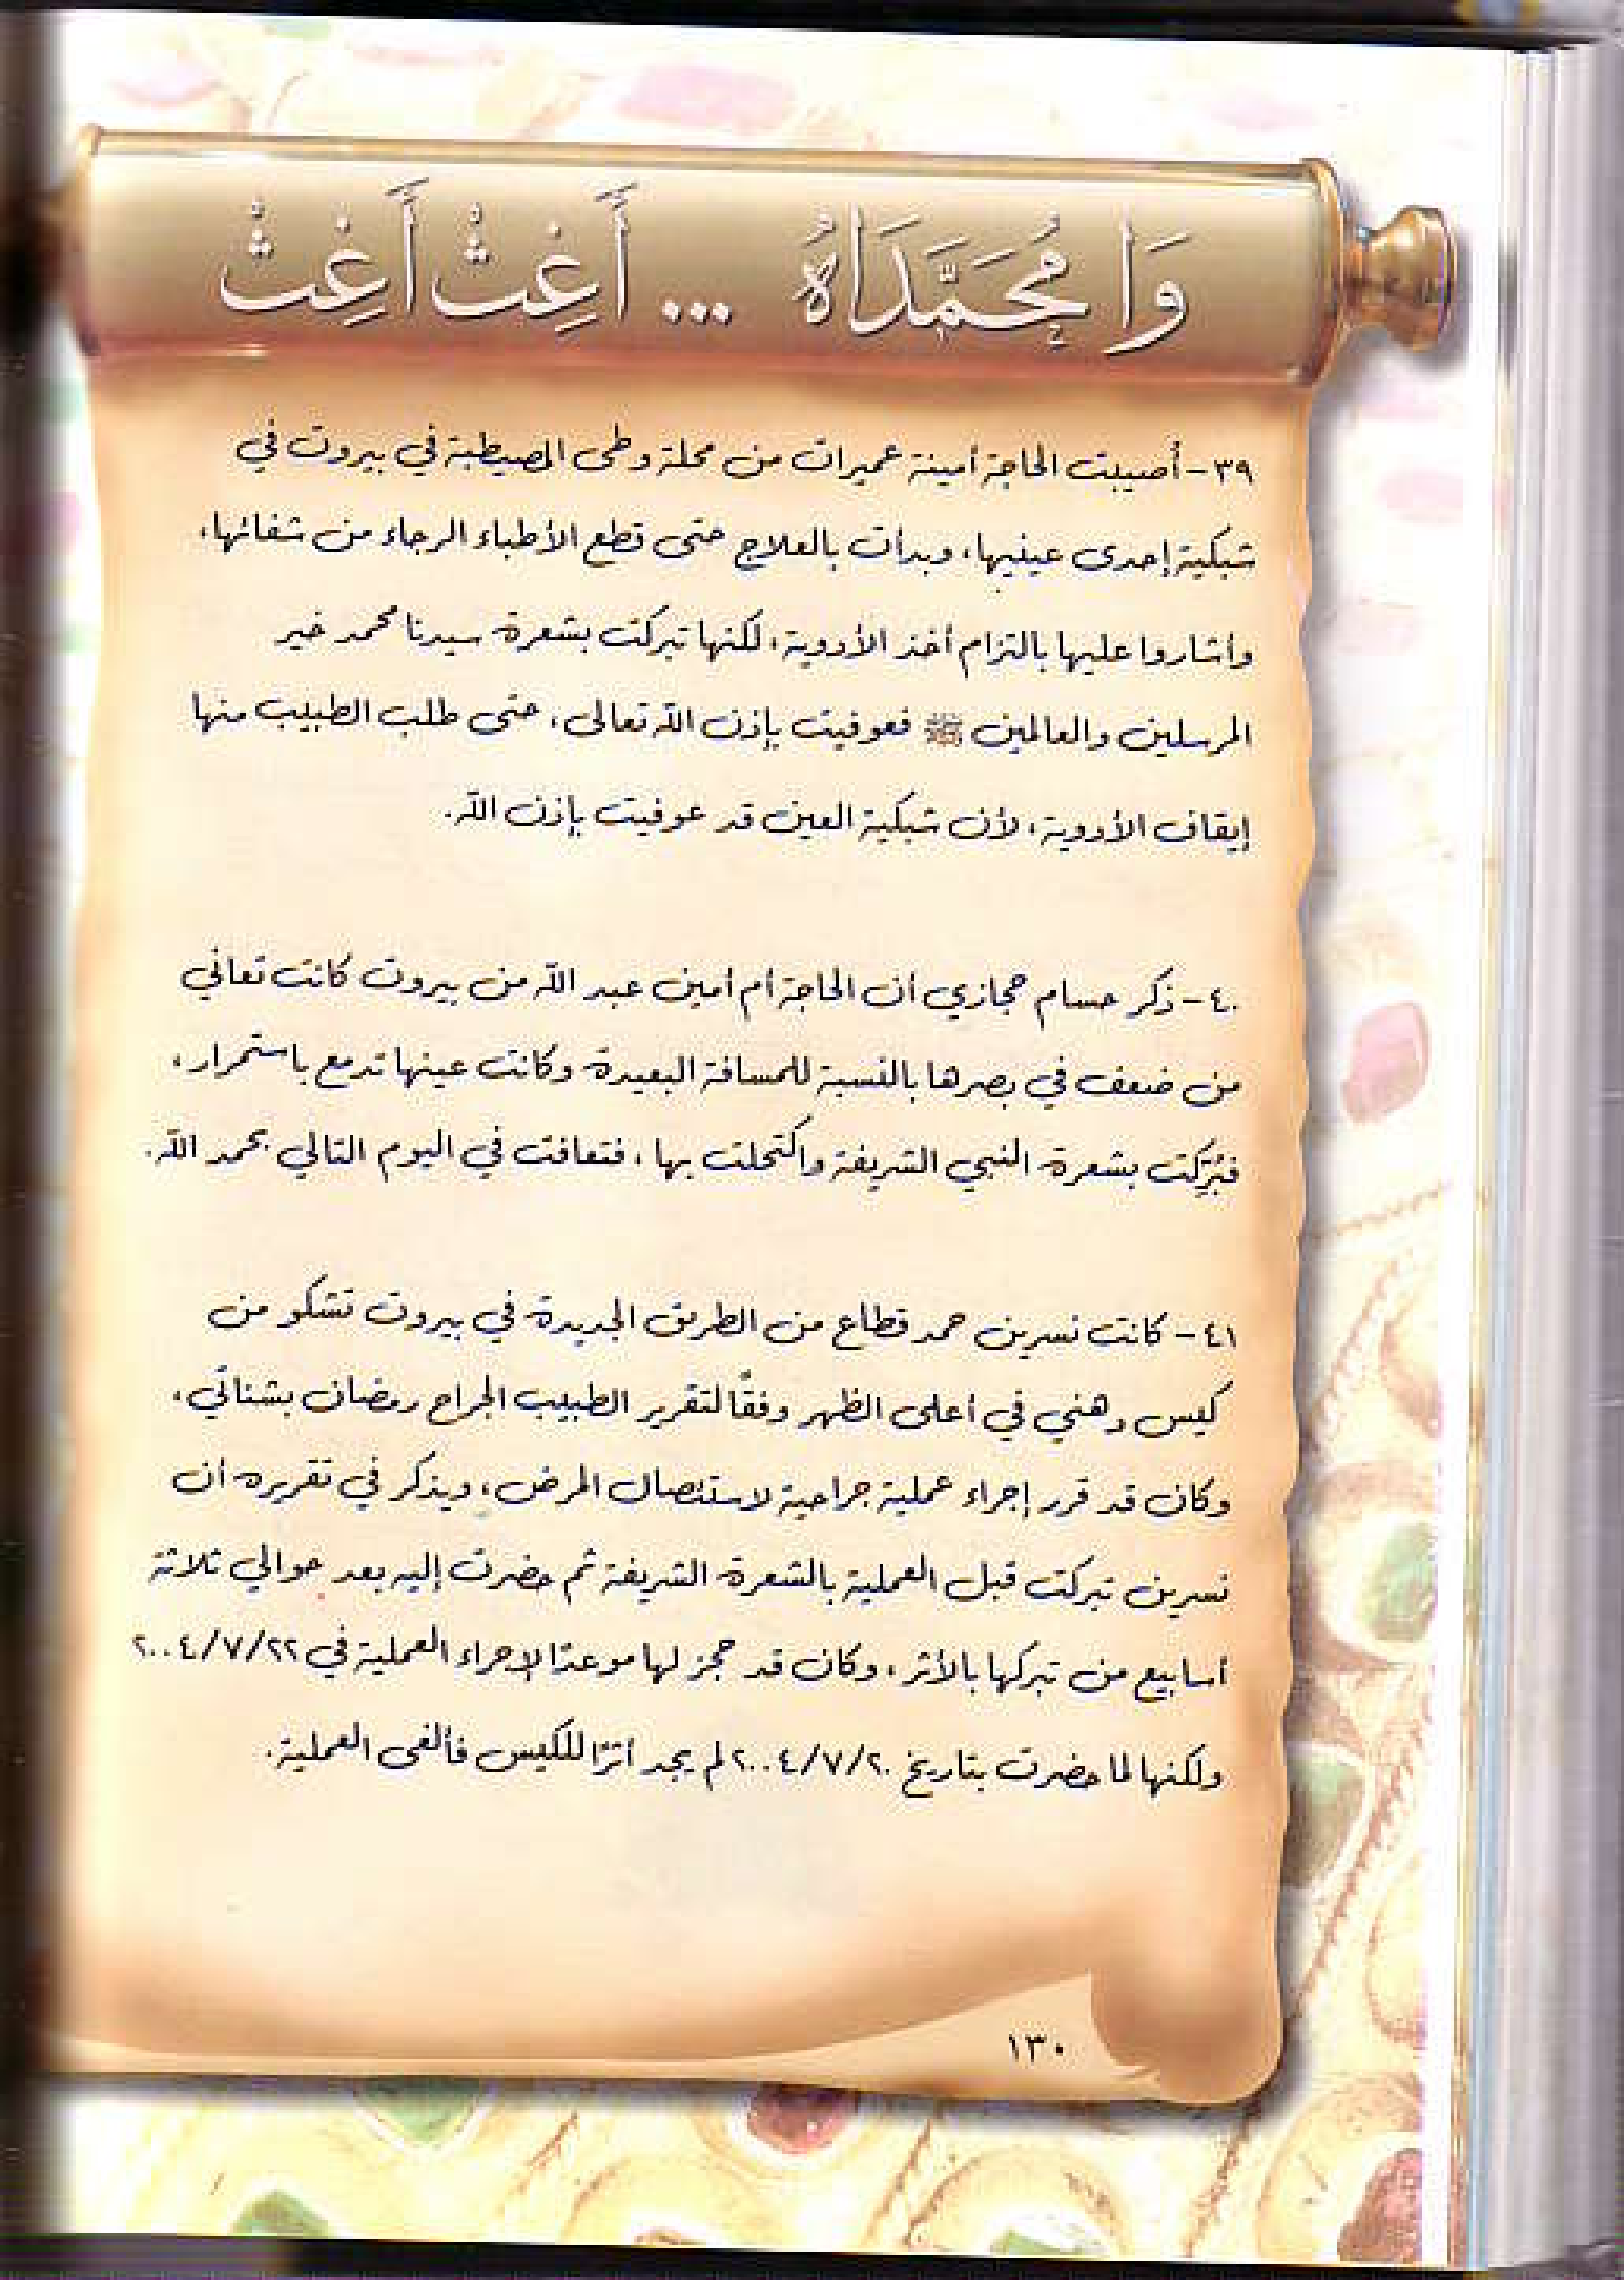 وَا مُحَمَّدَاهُ ... أَغِثْ أَغِثْ
٣٩- أصيبت الحاجة أمينة عميرات من محلة وطى المصيطبة في بيروت في
شبكية إحدى عينيها، وبدأت بالعلاج حتى قطع الأطباء الرجاء من شفائها،
وأشاروا عليها بالتزام أخذ الأدوية، لكنها تبركت بشعرة سيدنا محمد خير
المرسلين والعالمين ﷺ فعوفيت بإذن الله تعالى، حتى طلب الطبيب منها
إيقاف الأدوية، لأن شبكية العين قد عوفيت بإذن الله.
٤٠- ذكر حسام حجازي أن الحاجة أم أمين عبد الله من بيروت كانت تعاني
من ضعف في بصرها بالنسبة للمسافة البعيدة وكانت عينها تدمع باستمرار،
فبُرّكت بشعرة النبي الشريفة واكتحلت بها، فتعافت في اليوم التالي بحمد الله.
٤١- كانت نسرين حمد قطاع من الطريق الجديدة في بيروت تشكو من
كيس دهني في أعلى الظهر وفقًا لتقرير الطبيب الجراح رمضان بشناتي،
وكان قد قرر إجراء عملية جراحية لاستئصال المرض، ويذكر في تقريره أن
نسرين تبركت قبل العملية بالشعرة الشريفة ثم حضرت إليه بعد حوالي ثلاثة
أسابيع من تبركها بالأثر، وكان قد حجز لها موعدًا لإجراء العملية في ٢٠٠٤/٧/٢٢
ولكنها لما حضرت بتاريخ ٢٠٠٤/٧/٢٠ لم يجد أثرًا للكيس فألغى العملية.
١٣٠